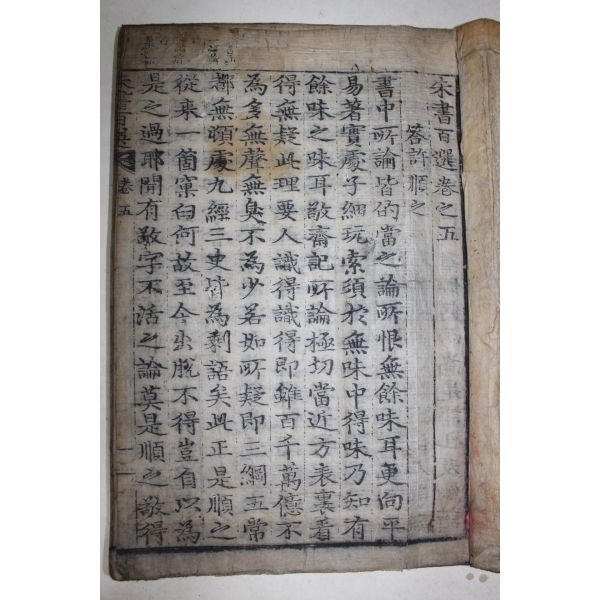 朱書百選卷之五
答許順之
書中所論皆的當之論所恨無餘味耳更向平
易著實處子細玩索須於無味中得味乃知有
餘味之味耳敬齋記所論極切當近方表裏看
得無疑此理要人識得識得即雖百千萬億不
為多無聲無臭不為少若如所疑即三綱五常
都無頓處九經三史皆為剩語矣此正是順之
從來一箇窠臼何故至今出脫不得豈自以為
是之過耶聞有敬字不活之論莫是順之敬得
卷五
一